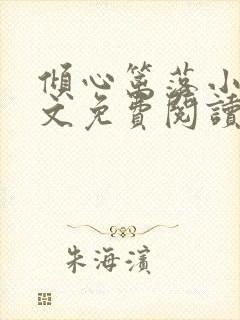 傾心篱落小
文免費閱讀
朱海濱